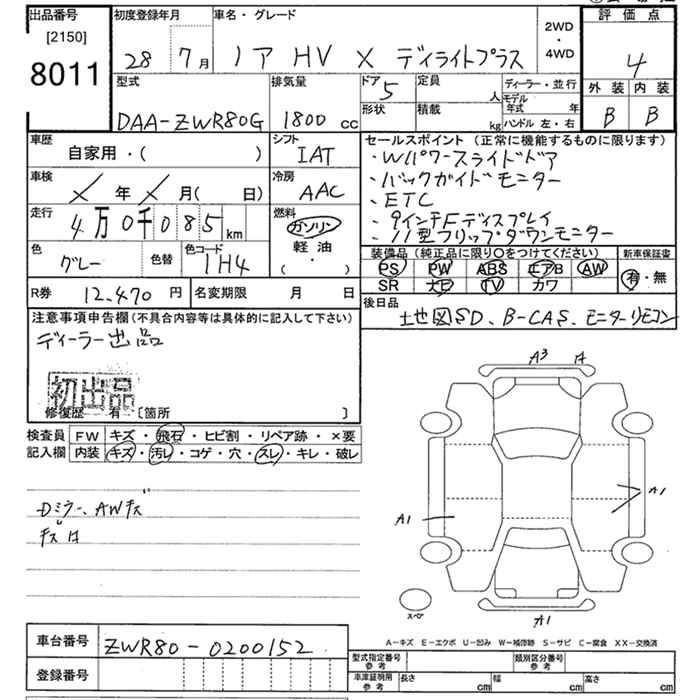 出品番号
[2150]
8011
初度登録年月
28年7月
車名・グレード
ノア HV X ディライトプラス
2WD
・
4WD
評価点
4
外装 内装
B B
型式
DAA-ZWR80G
排気量
1800 cc
ドア
5
定員
人
形状
積載
kg
ディーラー・並行
モデル年式 年
ハンドル 左・右
車歴
自家用・( )
シフト
IAT
車検
× 年 × 月( 日)
冷房
AAC
走行
4万0千085 km
燃料
ガソリン
軽油
( ・ )
色
グレー
色替
色コード
1H4
R券
12,470 円
名変期限 月 日
セールスポイント(正常に機能するものに限ります)
・Wパワースライドドア
・バックガイドモニター
・ETC
・9インチFディスプレイ
・11型フリップダウンモニター
装備品(純正品に限り○をつけてください)
PS PW ABS エアB AW
SR ナビ TV カワ
新車保証書
有・無
後日品
地図SD、B-CAS、モニターリモコン
注意事項申告欄(不具合内容等は具体的に記入して下さい)
ディーラー出品
初出品
修復歴 有 [箇所 ]
検査員
記入欄
FW キズ・飛石・ヒビ割・リペア跡・×要
内装 キズ・汚レ・コゲ・穴・スレ・キレ・破レ
Dミラー、AWキズ
キズ有
A3
A1
A1
A1
スペア
A-キズ E-エクボ U-凹み W-補修跡 S-サビ C-腐食 XX-交換済
車台番号
ZWR80-0200152
登録番号
型式指定番号
参考
類別区分番号
参考
車庫証明用
参考
長さ cm
幅 cm
高さ cm